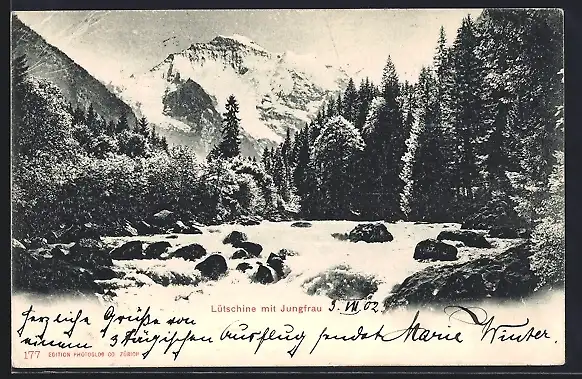 Lütschine mit Jungfrau 3 VII 02
Herzliche Grüße von
einem 3 tägigen Ausflug sendet Marie Winter.
177 EDITION PHOTOGLOB CO. ZÜRICH